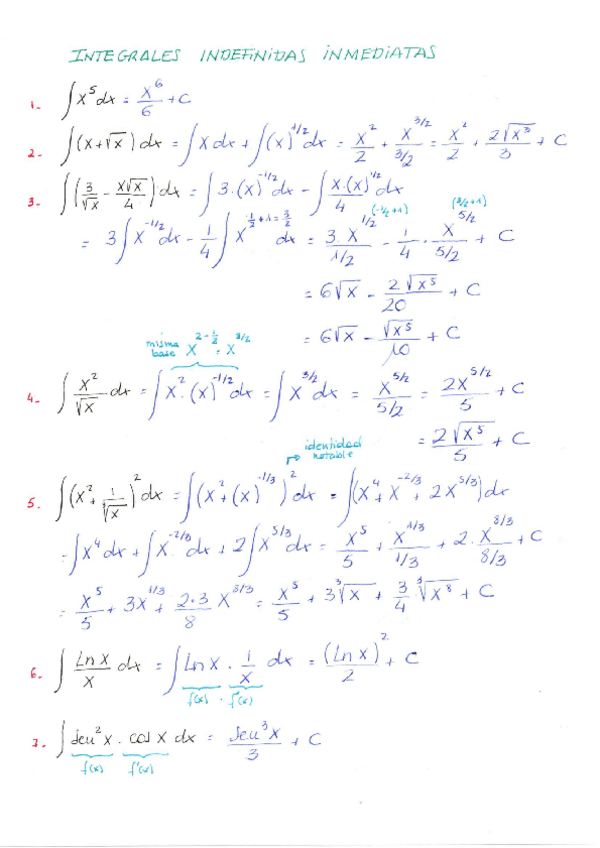 INTEGRALES INDEFINIDAS INMEDIATAS
1. ∫x⁵dx = x⁶/6 + C
2. ∫(x+√x)dx = ∫x dx + ∫(x)^(1/2) dx = x²/2 + x^(3/2)/(3/2) = x²/2 + 2√x³/3 + C
3. ∫(3/√x - x√x/4)dx = ∫3·(x)^(-1/2) - ∫x·(x)^(1/2)/4 dx
(-1/2+1) (3/2+1)
= 3∫x^(-1/2)dx - 1/4∫x^(1/2+1=3/2) dx = 3·x^(1/2)/(1/2) - 1/4 · x^(5/2)/(5/2) + C
= 6√x - 2√x⁵/20 + C
misma base x^(2-1/2) = x^(3/2)
= 6√x - √x⁵/10 + C
4. ∫x²/√x dx = ∫x²·(x)^(-1/2)dx = ∫x^(3/2)dx = x^(5/2)/(5/2) = 2x^(5/2)/5 + C
= 2√x⁵/5 + C
identidad notable
5. ∫(x²+1/∛x)²dx = ∫(x²+(x)^(-1/3))² dx = ∫(x⁴+x^(-2/3)+2x^(5/3))dx
= ∫x⁴dx + ∫x^(-2/3)dx + 2∫x^(5/3)dx = x⁵/5 + x^(1/3)/(1/3) + 2·x^(8/3)/(8/3) + C
= x⁵/5 + 3x^(1/3) + 2·3/8 x^(8/3) = x⁵/5 + 3∛x + 3/4 ∛x⁸ + C
6. ∫Ln x/x dx = ∫Ln x · 1/x dx = (Ln x)²/2 + C
f(x) · f'(x)
7. ∫sen²x · cos x dx = sen³x/3 + C
f(x) f'(x)